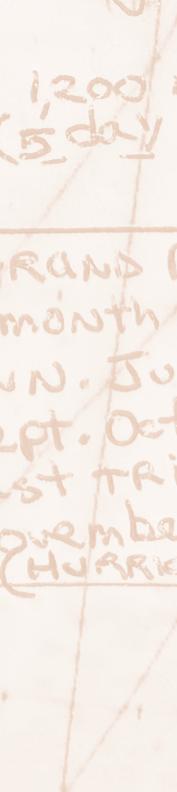 1,200
(5 day
RAND
month
UN. Ju
ept. Oct
st tri
ovembe
(HURRI